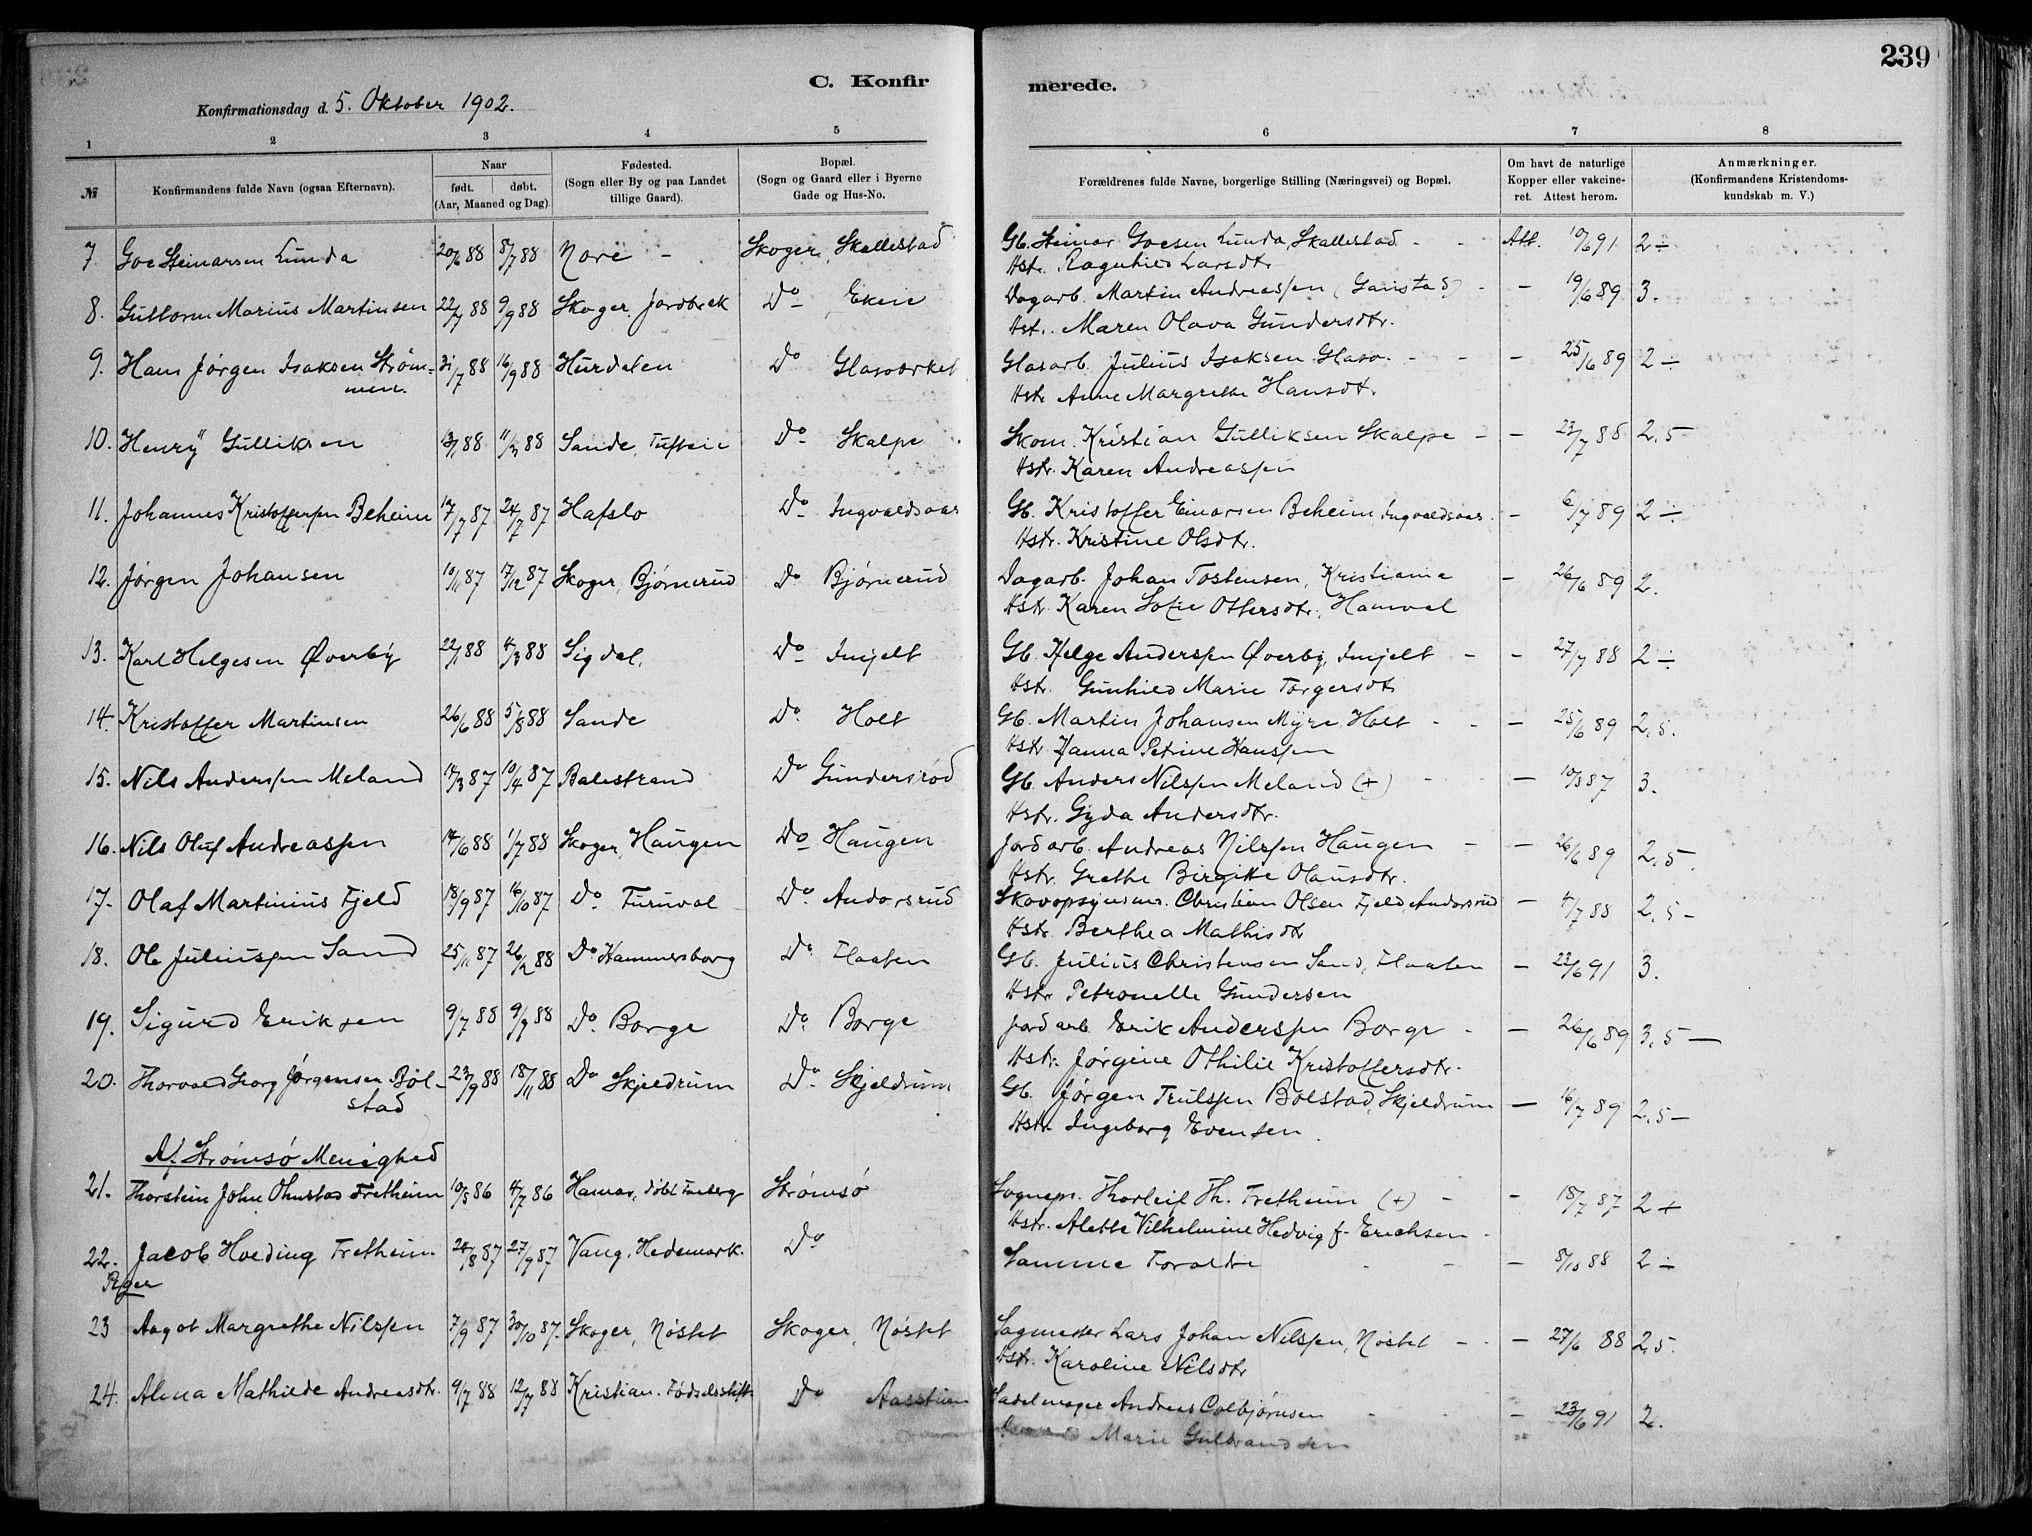 239
C. Konfirmerede.
Konfirmationsdag d. 5. Oktober 1902.
1 2 3 4 5 6 7 8
№ Konfirmandens fulde Navn (ogsaa Efternavn). Naar født. døbt. (Aar, Maaned og Dag). Fødested. (Sogn eller By og paa Landet tillige Gaard). Bopæl. (Sogn og Gaard eller i Byerne Gade og Hus-No. Forældrenes fulde Navne, borgerlige Stilling (Næringsvei) og Bopæl. Om havt de naturlige Kopper eller vakcineret. Attest herom. Anmærkninger. (Konfirmandens Kristendomskundskab m. V.)
7 Goe Steinarsen Lunda 20/6 88 8/7 88 Nore - Skoger, Skallestad Gb. Steinar Goesen Lunda, Skallestad - - Att. 10/6 91 2 ÷
Hstr. Raguhild Larsdtr
8. Guttorm Marius Martinsen 22/7 88 9/9 88 Skoger, Jordbræk Do Ekeie Dagarb. Martin Andreassen (Ganstad) - - 19/6 89 3.
Hst. Maren Olava Gundersdtr.
9. Hans Jørgen Isaksen Strøm= 31/7 88 16/9 88 Hurdalen Do Glasværket Glasarb. Julius Isaksen Glasv. - - - 25/6 89 2 ÷
men. Hstr Anne Margrethe Hansdtr.
10. Henry Gulliksen 13/1 88 11/3 88 Sande, Tufteie Do Skalpe Skom. Kristian Gulliksen Skalpe - - 23/7 88 2,5
Hstr. Karen Andreassen
11. Johannes Kristoffersen Beheim 17/7 87 24/7 87 Hafslo Do Ingvaldsaas Gb. Kristoffer Einarsen Beheim Ingvaldsaas. - 6/7 89 2 ÷
Hstr. Kristine Olsdtr.
12. Jørgen Johansen 10/11 87 17/12 87 Skoger, Bjørnerud Do Bjørnerud Dagarb. Johan Tostensen, Kristiania - 26/6 89 2.
Hstr. Karen Sofie Ottersdtr. Hamval
13. Karl Helgesen Øverby 22/1 88 4/3 88 Sigdal, Do Imjelt Gb. Helge Anderssen Øverby, Imjelt - - 27/7 88 2 ÷
Hstr. Gunhild Marie Torgersdtr
14. Kristoffer Martinsen 26/6 88 5/8 88 Sande Do Holt Gb. Martin Johansen Myre, Holt - - - 25/6 89 2,5.
Hstr. Hanna Petrine Hanssen
15. Nils Anderssen Meland 14/3 87 10/4 87 Balestrand Do Gundersrød Gb. Anders Nilssen Meland (+) - - 10/8 87 3.
Hstr. Gyda Andersdtr.
16. Nils Oluf Andreassen 14/6 88 1/7 88 Skoger, Haugen Do Haugen Jordarb. Andreas Nilssen Haugen - - 26/6 89 2,5-
Hstr. Grethe Birgitte Olausdtr.
17. Olaf Martinius Fjeld 18/9 87 16/10 87 Do Furuvol Do Andorsrud Skovopsynsm. Christian Olsen Fjeld, Andorsrud - 4/7 88 2,5-
Hstr. Berthea Mathisdtr
18. Ole Juliussen Sand 25/11 87 26/2 88 Do Hammersborg Do Flaaten Gb. Julius Christensen Sand, Flaaten - 23/6 91 3.
Hstr Petronelle Gundersen
19. Sigurd Eriksen 9/7 88 9/9 88 Do Borge Do Borge Jordarb Erik Anderssen Borge - - 26/6 89 3,5 -
Hstr. Jørgine Othilie Kristoffersdtr.
20. Thorvald Georg Jørgensen Bøl- 23/9 88 18/11 88 Do Skjeldrum Do Skjeldrum Gb. Jørgen Trulssen Bolstad, Skjeldrum - 16/7 89 2,5-
stad Hstr. Ingeborg Evensen.
Af Strømsø Menighed
21. Thorstein John Ohnstad Fretheim 10/5 86 4/7 86 Hamar, døbt Furberg Strømsø Sognepr. Thorleif Th. Fretheim (+) - - 18/7 87 2 +
Hstr. Alette Vilhelmine Hedvig f. Erichsen
22. Jacob Hveding Fretheim 24/8 87 27/9 87 Vang, Hedemark. Do Samme Forældre - - 8/10 88 2 ÷
Piger
23 Aagot Margrethe Nilssen 7/9 87 30/10 87. Skoger, Nøstet Skoger, Nøstet Sagmester Lars Johan Nilssen, Nøstet - - 27/6 88 2,5.
Hstr. Karoline Nilsdtr
24. Alma Mathilde Andreasdtr. 9/7 88 12/7 88 Kristian. Fødselsstift. Do Aasstuen Sadelmager Andreas Colbjørnsen - - 23/6 91 2.
Marie Gulbrandsen